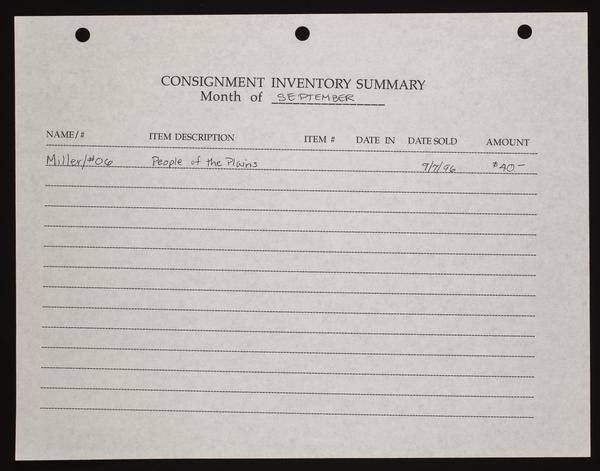 CONSIGNMENT INVENTORY SUMMARY
Month of SEPTEMBER
NAME/# ITEM DESCRIPTION ITEM # DATE IN DATE SOLD AMOUNT
Miller/#06 People of the Plains 9/7/96 $40.—